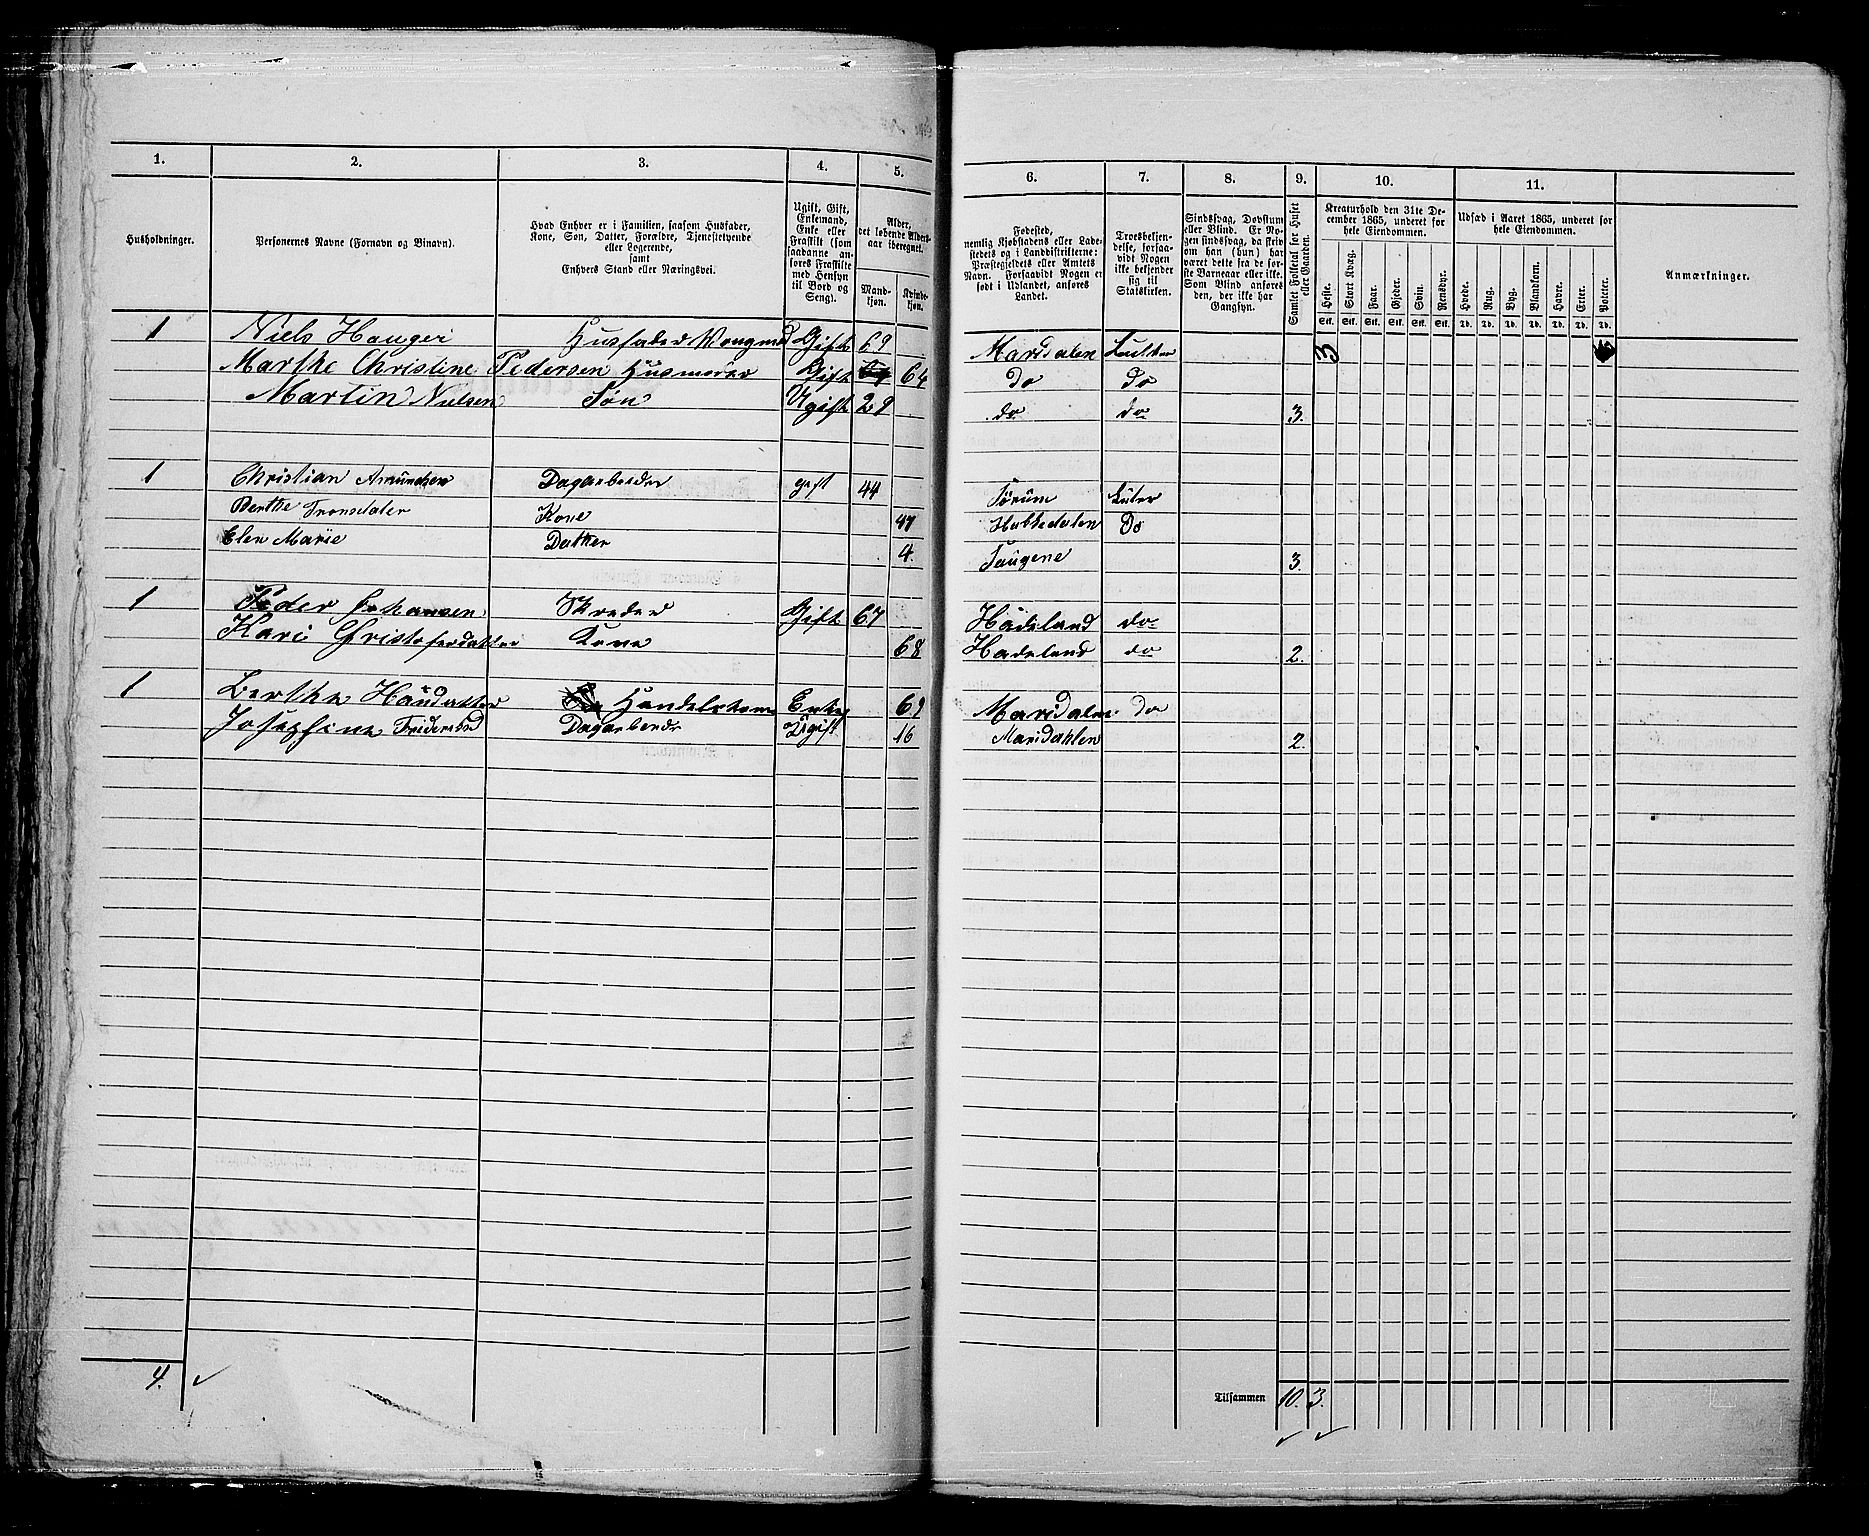 1. 2. 3. 4. 5.
Husholdninger.
Personernes Navne (Fornavn og Binavn).
Hvad Enhver er i Familien, saasom Husfader,
Kone, Søn, Datter, Forældre, Tjenestetyende
eller Logerende,
samt
Enhvers Stand eller Næringsvei.
Ugift, Gift,
Enkemand,
Enke eller
Fraskilt (som
saadanne an-
føres Fraskilte
med Hensyn
til Bord og
Seng).
Alder,
det løbende Alders-
aar iberegnet.
Mand-
kjøn.
Kvinde-
kjøn.
1 Niels Hauger Husfader Gift 69
Marthe Christine Pedersen Husmoder Gift 64
Martin Nielsen Søn Ugift 29
1 Christian Amundsen Dagarbeider gift 44
Berthe Tronsdater Kone 47
Elen Marie Datter 4.
1 Peder Johansen Skreder Gift 67
Kari Christofersdatter Kone 68
1 Berthe Enke 69
Josephine Dagarbeidr Ugift 16
4.
6. 7. 8. 9. 10. 11.
Fødested,
nemlig Kjøbstadens eller Lade-
stedets og i Landdistrikterne:
Præstegjeldets eller Amtets
Navn. Forsaavidt Nogen er
født i Udlandet, anføres
Landet.
Troesbekjen-
delse, forsaa-
vidt Nogen
ikke bekjender
sig til
Statskirken.
Sindssvag, Døvstum
eller Blind. Er No-
gen sindssvag, da skriv
om han (hun) har
været dette fra de før-
ste Barneaar eller ikke.
Som Blind anføres
den, der ikke har
Gangsyn.
Samlet Folketal for Huset
eller Gaarden.
Kreaturhold den 31te De-
cember 1865, underet for
hele Eiendommen.
Heste. Stort Kvæg. Faar. Gjeder. Svin. Rensdyr.
Stk. Stk. Stk. Stk. Stk. Stk.
Udsæd i Aaret 1865, underet for
hele Eiendommen.
Hvede. Rug. Byg. Blandkorn. Havre. Erter. Poteter.
Td. Td. Td. Td. Td. Td. Td.
Anmærkninger.
Maridalen 3
Do do
do do 3.
Sørum Luter
Do
3.
Hadeland do
Hadeland do 2.
Maridalen do
Maridahlen 2.
Tilsammen 10. 3.